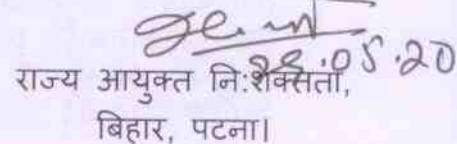 28.05.20
राज्य आयुक्त नि:शक्तता,
बिहार, पटना।